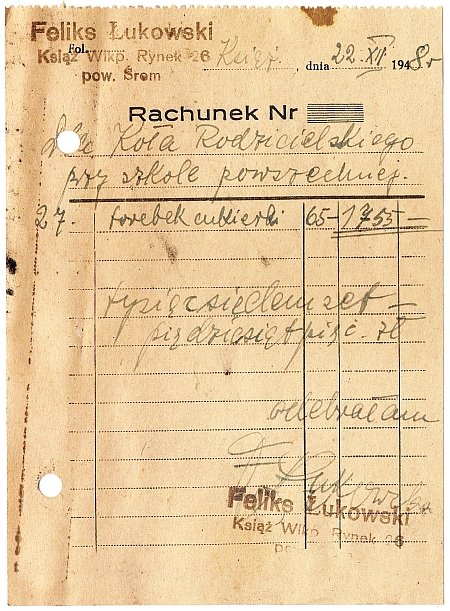 Feliks Łukowski
Fol.
Książ Wlkp. Rynek 26
pow. Śrem
Książ, dnia 22. XII 1948 r
Rachunek Nr
Dla Koła Rodzicielskiego
przy szkole powszechnej.
27. torebek cukierki 65- 1755-
tysiąc siedemset -
pięćdziesiąt pięć. zł
odebrałam
F Łukowska
Feliks Łukowski
Książ Wlkp. Rynek 26